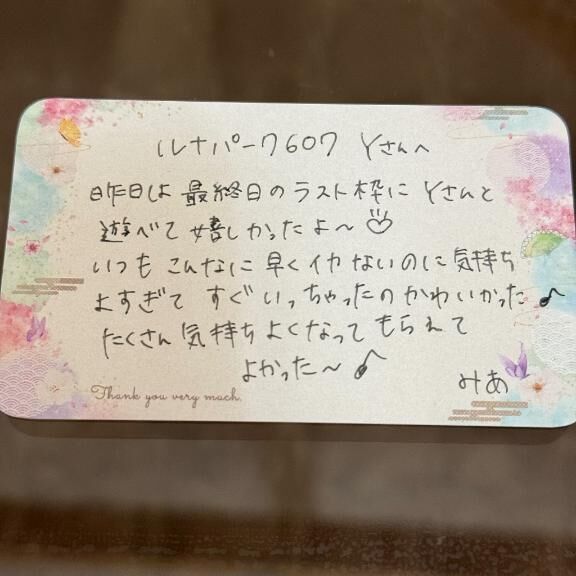 ルナパーク607 Yさんへ
昨日は最終日のラスト枠にYさんと
遊べて嬉しかったよ～♡
いつもこんなに早くイカないのに気持ち
よすぎてすぐいっちゃったのかわいかった♪
たくさん気持ちよくなってもらえて
よかった～♪
みあ
Thank you very much.